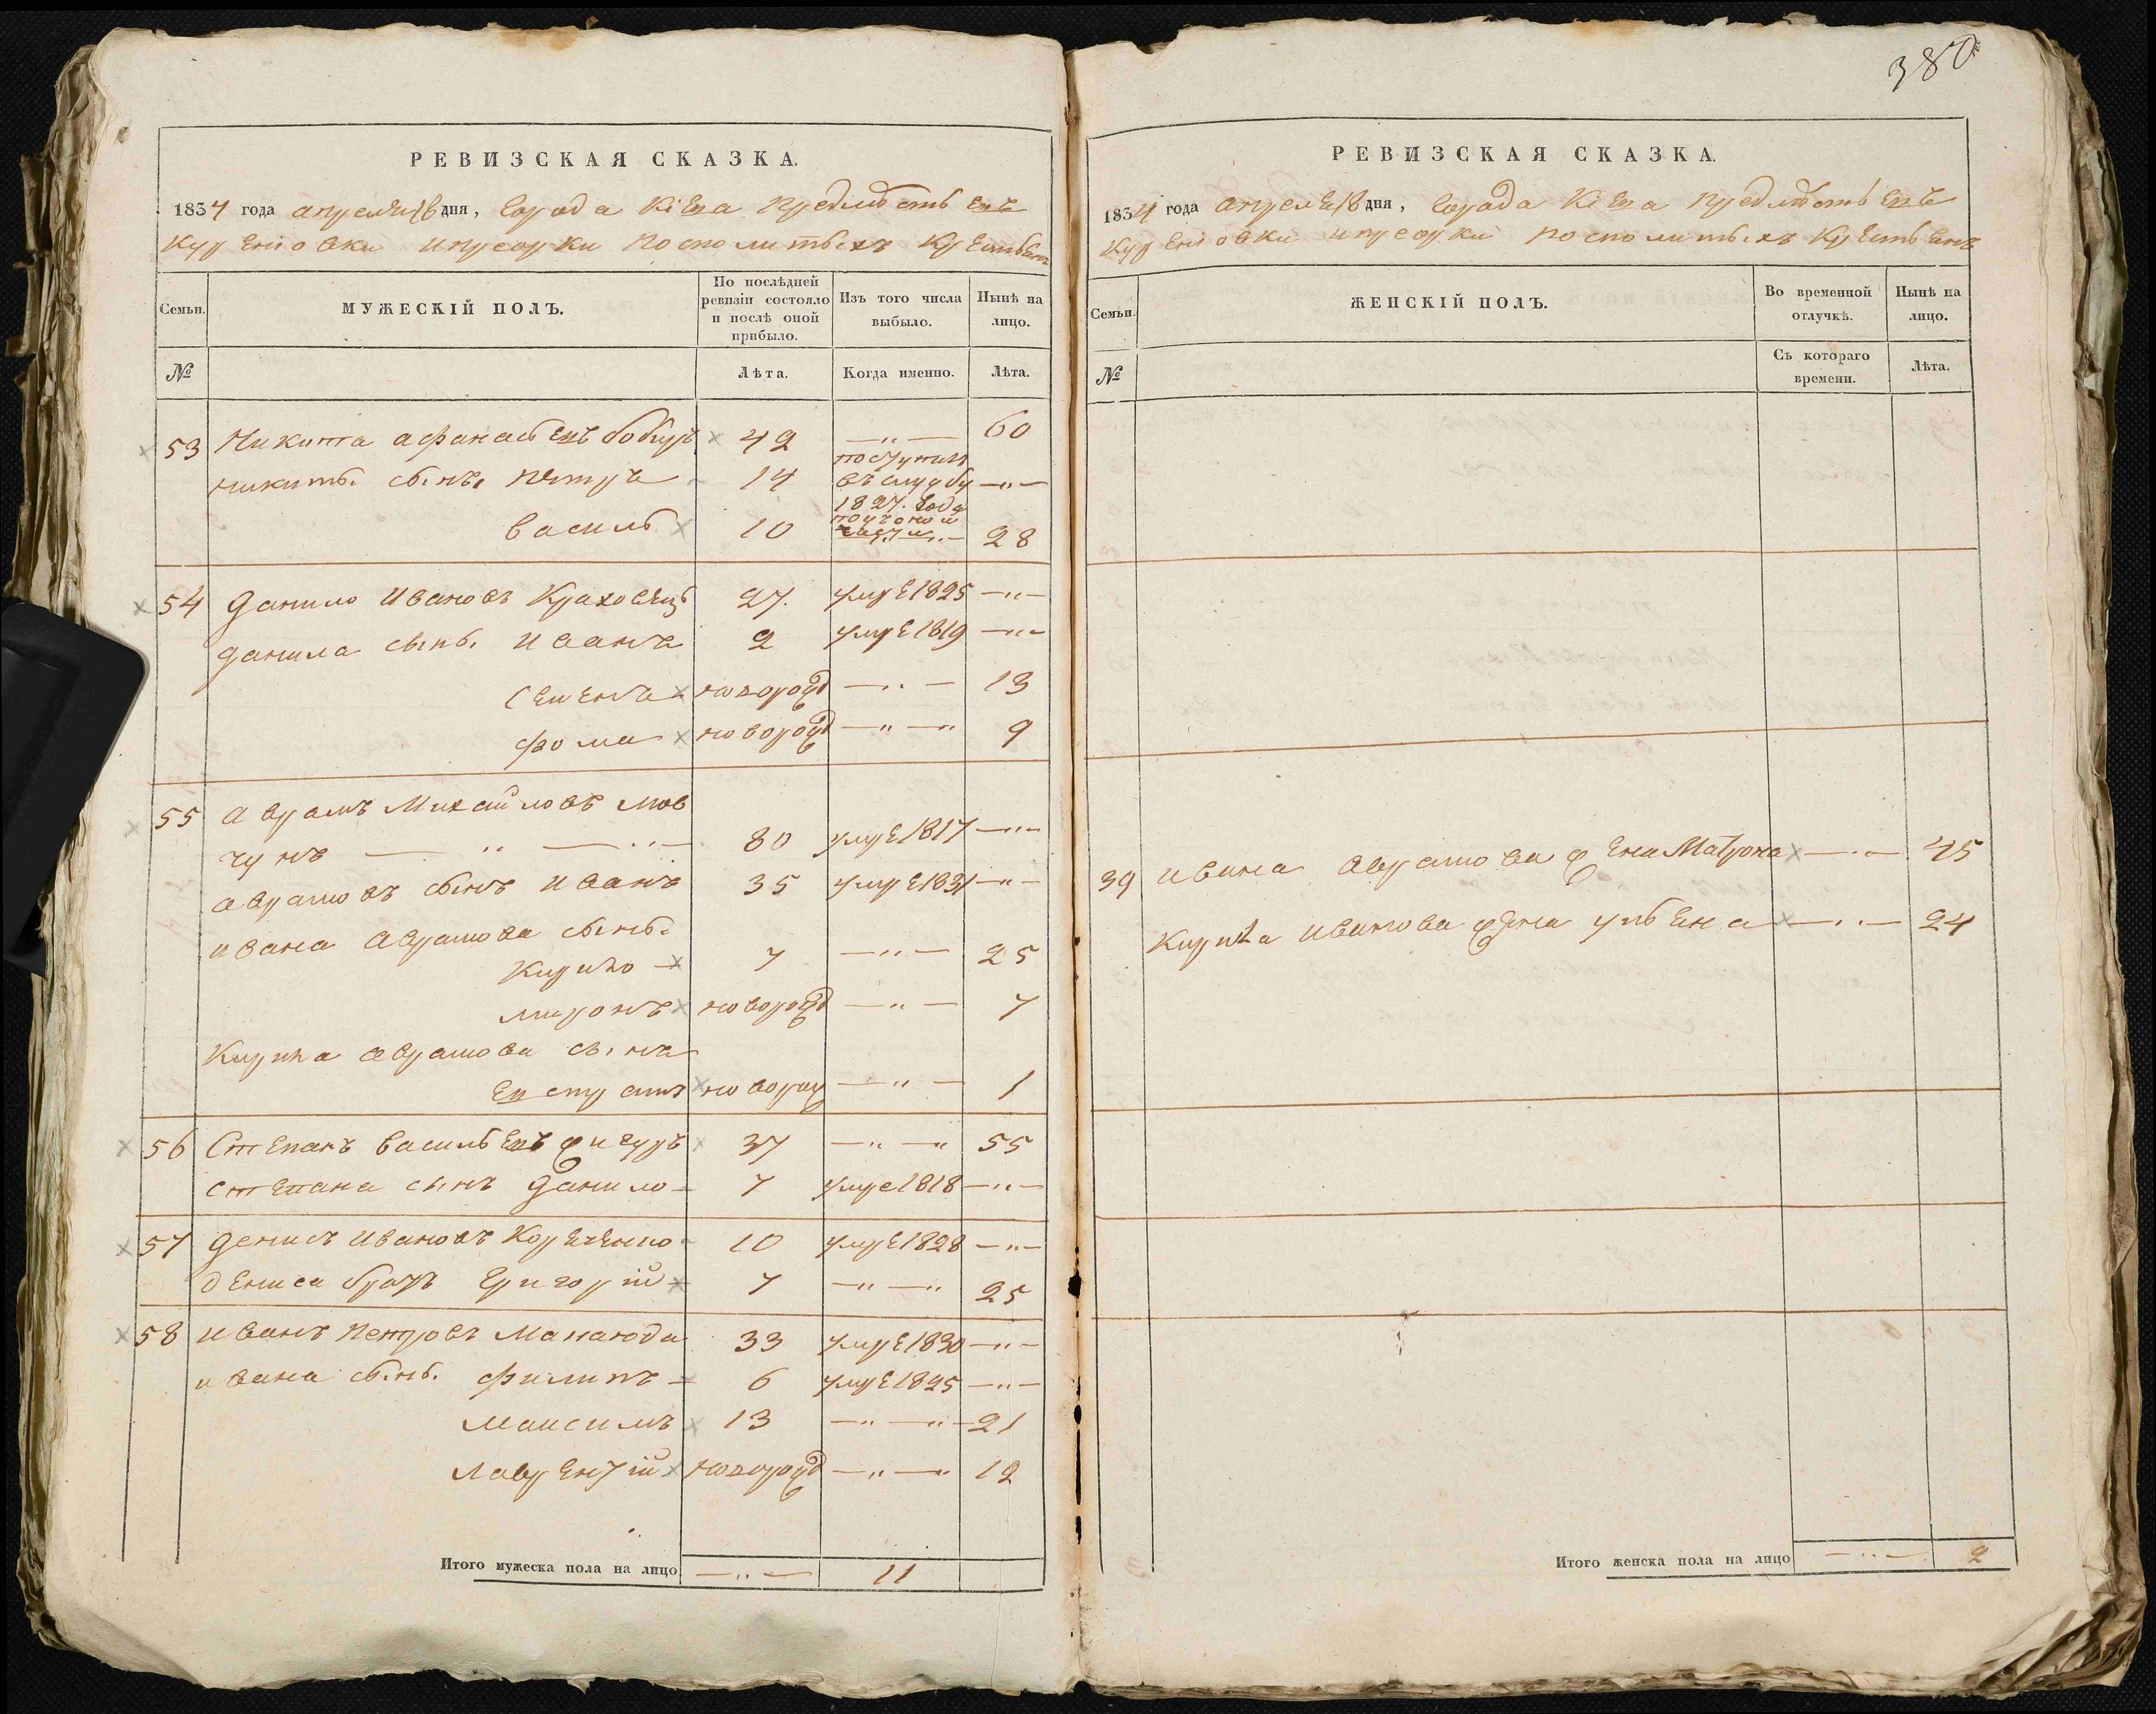 380
РЕВИЗСКАЯ СКАЗКА.
1834 года апреля 18 дня, города Кіева предместьевъ
Куреніовки и Пріорки посполитыхъ крестьянъ
Семьи. МУЖЕСКІЙ ПОЛЪ. По послѣдней ревизіи состояло и послѣ оной прибыло. Изъ того числа выбыло. Нынѣ на лицо.
№ Лѣта. Когда именно. Лѣта.
53 Никита афанасьевъ бобыръ 42 —„— 60
никиты сынъ петръ 14 поступилъ въ службу 1827. года —„—
василь 10 —„— 28
54 Данило Ивановъ Краховецъ 27. умре 1825 —„—
данила сынъ. иванъ 2 умре 1819 —„—
семенъ новорожд —„— 13
фома новорожд —„—„ 9
55 аврамъ Михайловъ мов
чунъ —„—„— 80 умре 1817 —„—
аврамовъ сынъ иванъ 35 умре 1831 —„—
ивана аврамова сынъ.
Кирило 7 —„— 25
миронъ новорожд —„— 7
Кирила аврамова сынъ
евстратъ новорож —„— 1
56 Степанъ васильевъ фигуръ 37 —„—„ 55
степана сынъ данило 7 умре 1818 —„—
57 денисъ ивановъ Кореченко 10 умре 1828 —„—
дениса братъ григорій 7 —„—„ 25
58 иванъ петровъ Манаюда 33 умре 1830 —„—
ивана сынъ. филипъ 6 умре 1825 —„—
максимъ 13 —„—„— 21
лаврентій новорожд —„—„ 12
Итого мужеска пола на лицо —„— 11
РЕВИЗСКАЯ СКАЗКА.
1834 года апреля 18 дня, города Кіева предместьевъ
Куреніовки и Пріорки посполитыхъ крестьянъ
Семьи. ЖЕНСКІЙ ПОЛЪ. Во временной отлучкѣ. Нынѣ на лицо.
№ Съ котораго времени. Лѣта.
39 ивана аврамова жена Матрона —„— 45
Кирила иванова жена ульяна —„— 24
Итого женска пола на лицо —„— 2